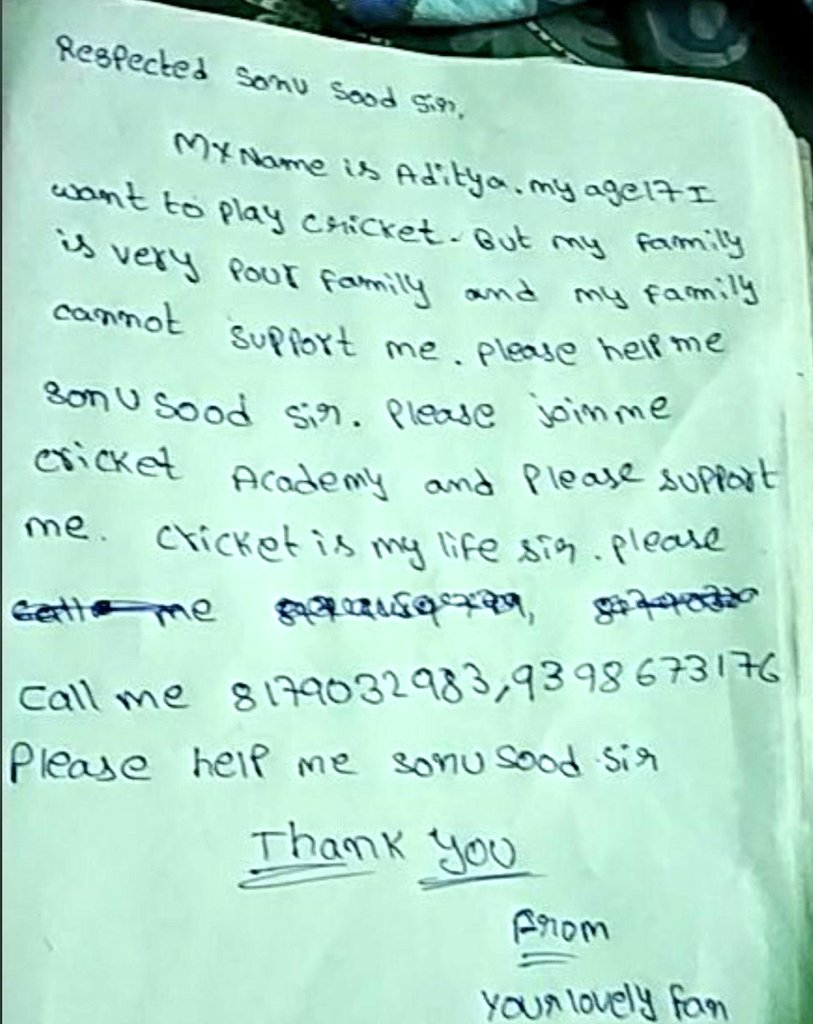 Respected Sonu Sood Sir,
My Name is Aditya. my age 17 I
want to play cricket. But my family
is very pour family and my family
cannot support me. please help me
sonu sood sir. Please join me
cricket Academy and Please support
me. cricket is my life sir. please
call me
call me 8179032983, 9398673176
Please help me sonu sood sir
Thank you
From
your lovely fan